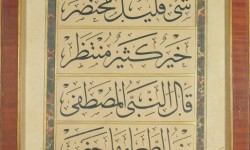 شئ قليل مختصر
خير كثير منتظر
قال النبي المصطفى